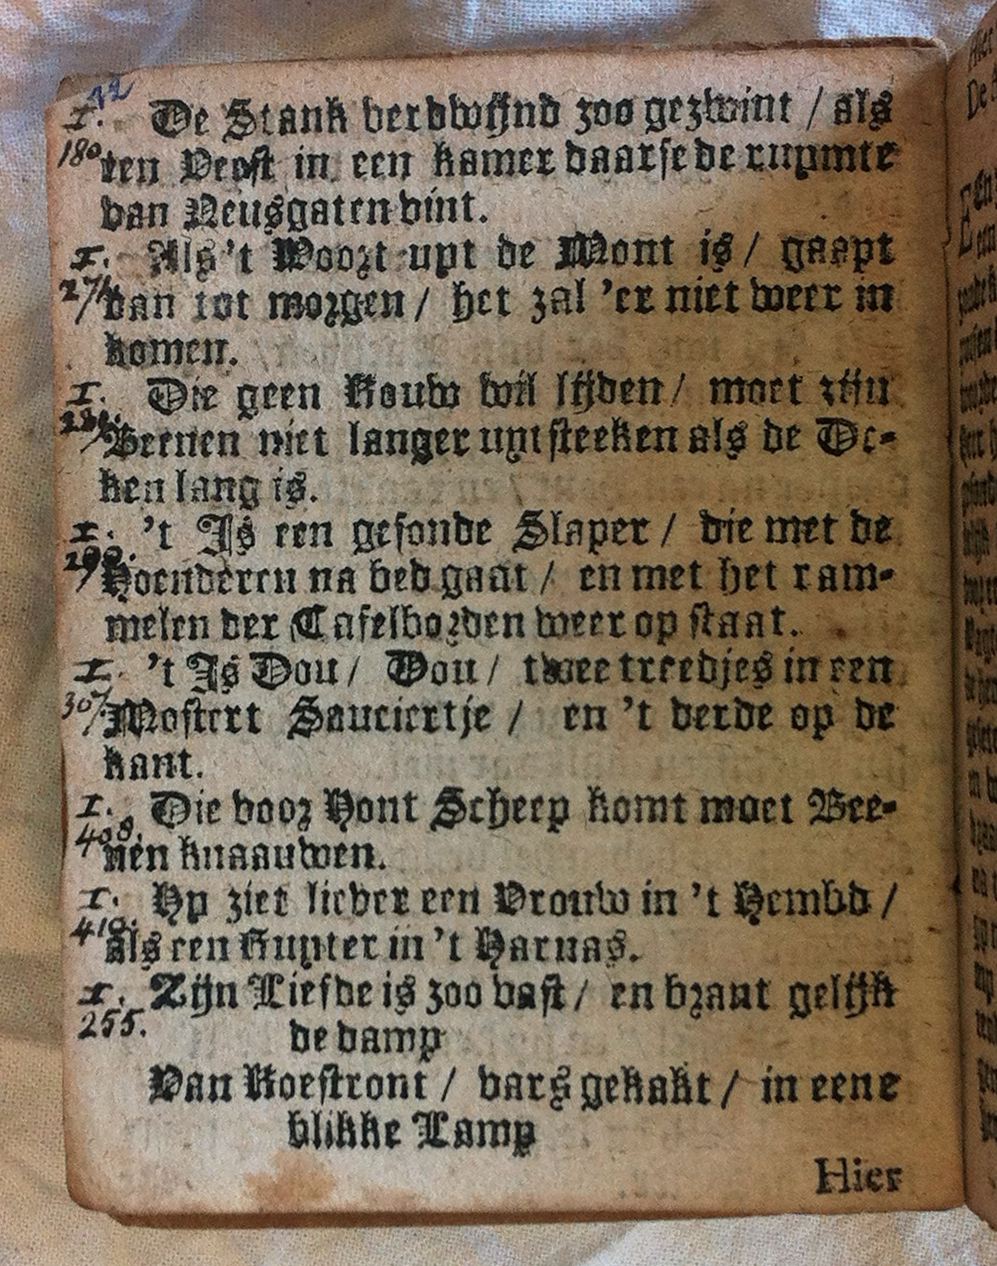 42
I. De Stank verdwijnd zoo gezwint / als
180 een Veest in een kamer daarse de ruymte
van Neusgaten vint.
I. Als 't Woozt uyt de Mont is / gaapt
271 van tot morgen / het zal 'er niet weer in
komen.
I. Die geen Kouw wil lijden / moet zijn
Beenen niet langer uytsteeken als de De-
ken lang is.
I. 't Is een gesonde Slaper / die met de
290. Hoenderen na bed gaat / en met het ram-
melen der Tafelborden weer op staat.
I. 't Is Dou / Dou / twee treedjes in een
307 Mostert Sauciertje / en 't derde op de
kant.
I. Die voor Hont Scheep komt moet Bee-
408. nen knaauwen.
I. Hy ziet liever een Vrouw in 't Hembd /
410. als een Ruyter in 't Harnas.
I. Zijn Liefde is zoo vast / en brant gelijk
255. de damp
Van Koestront / vars gekakt / in eene
blikke Lamp
Hier